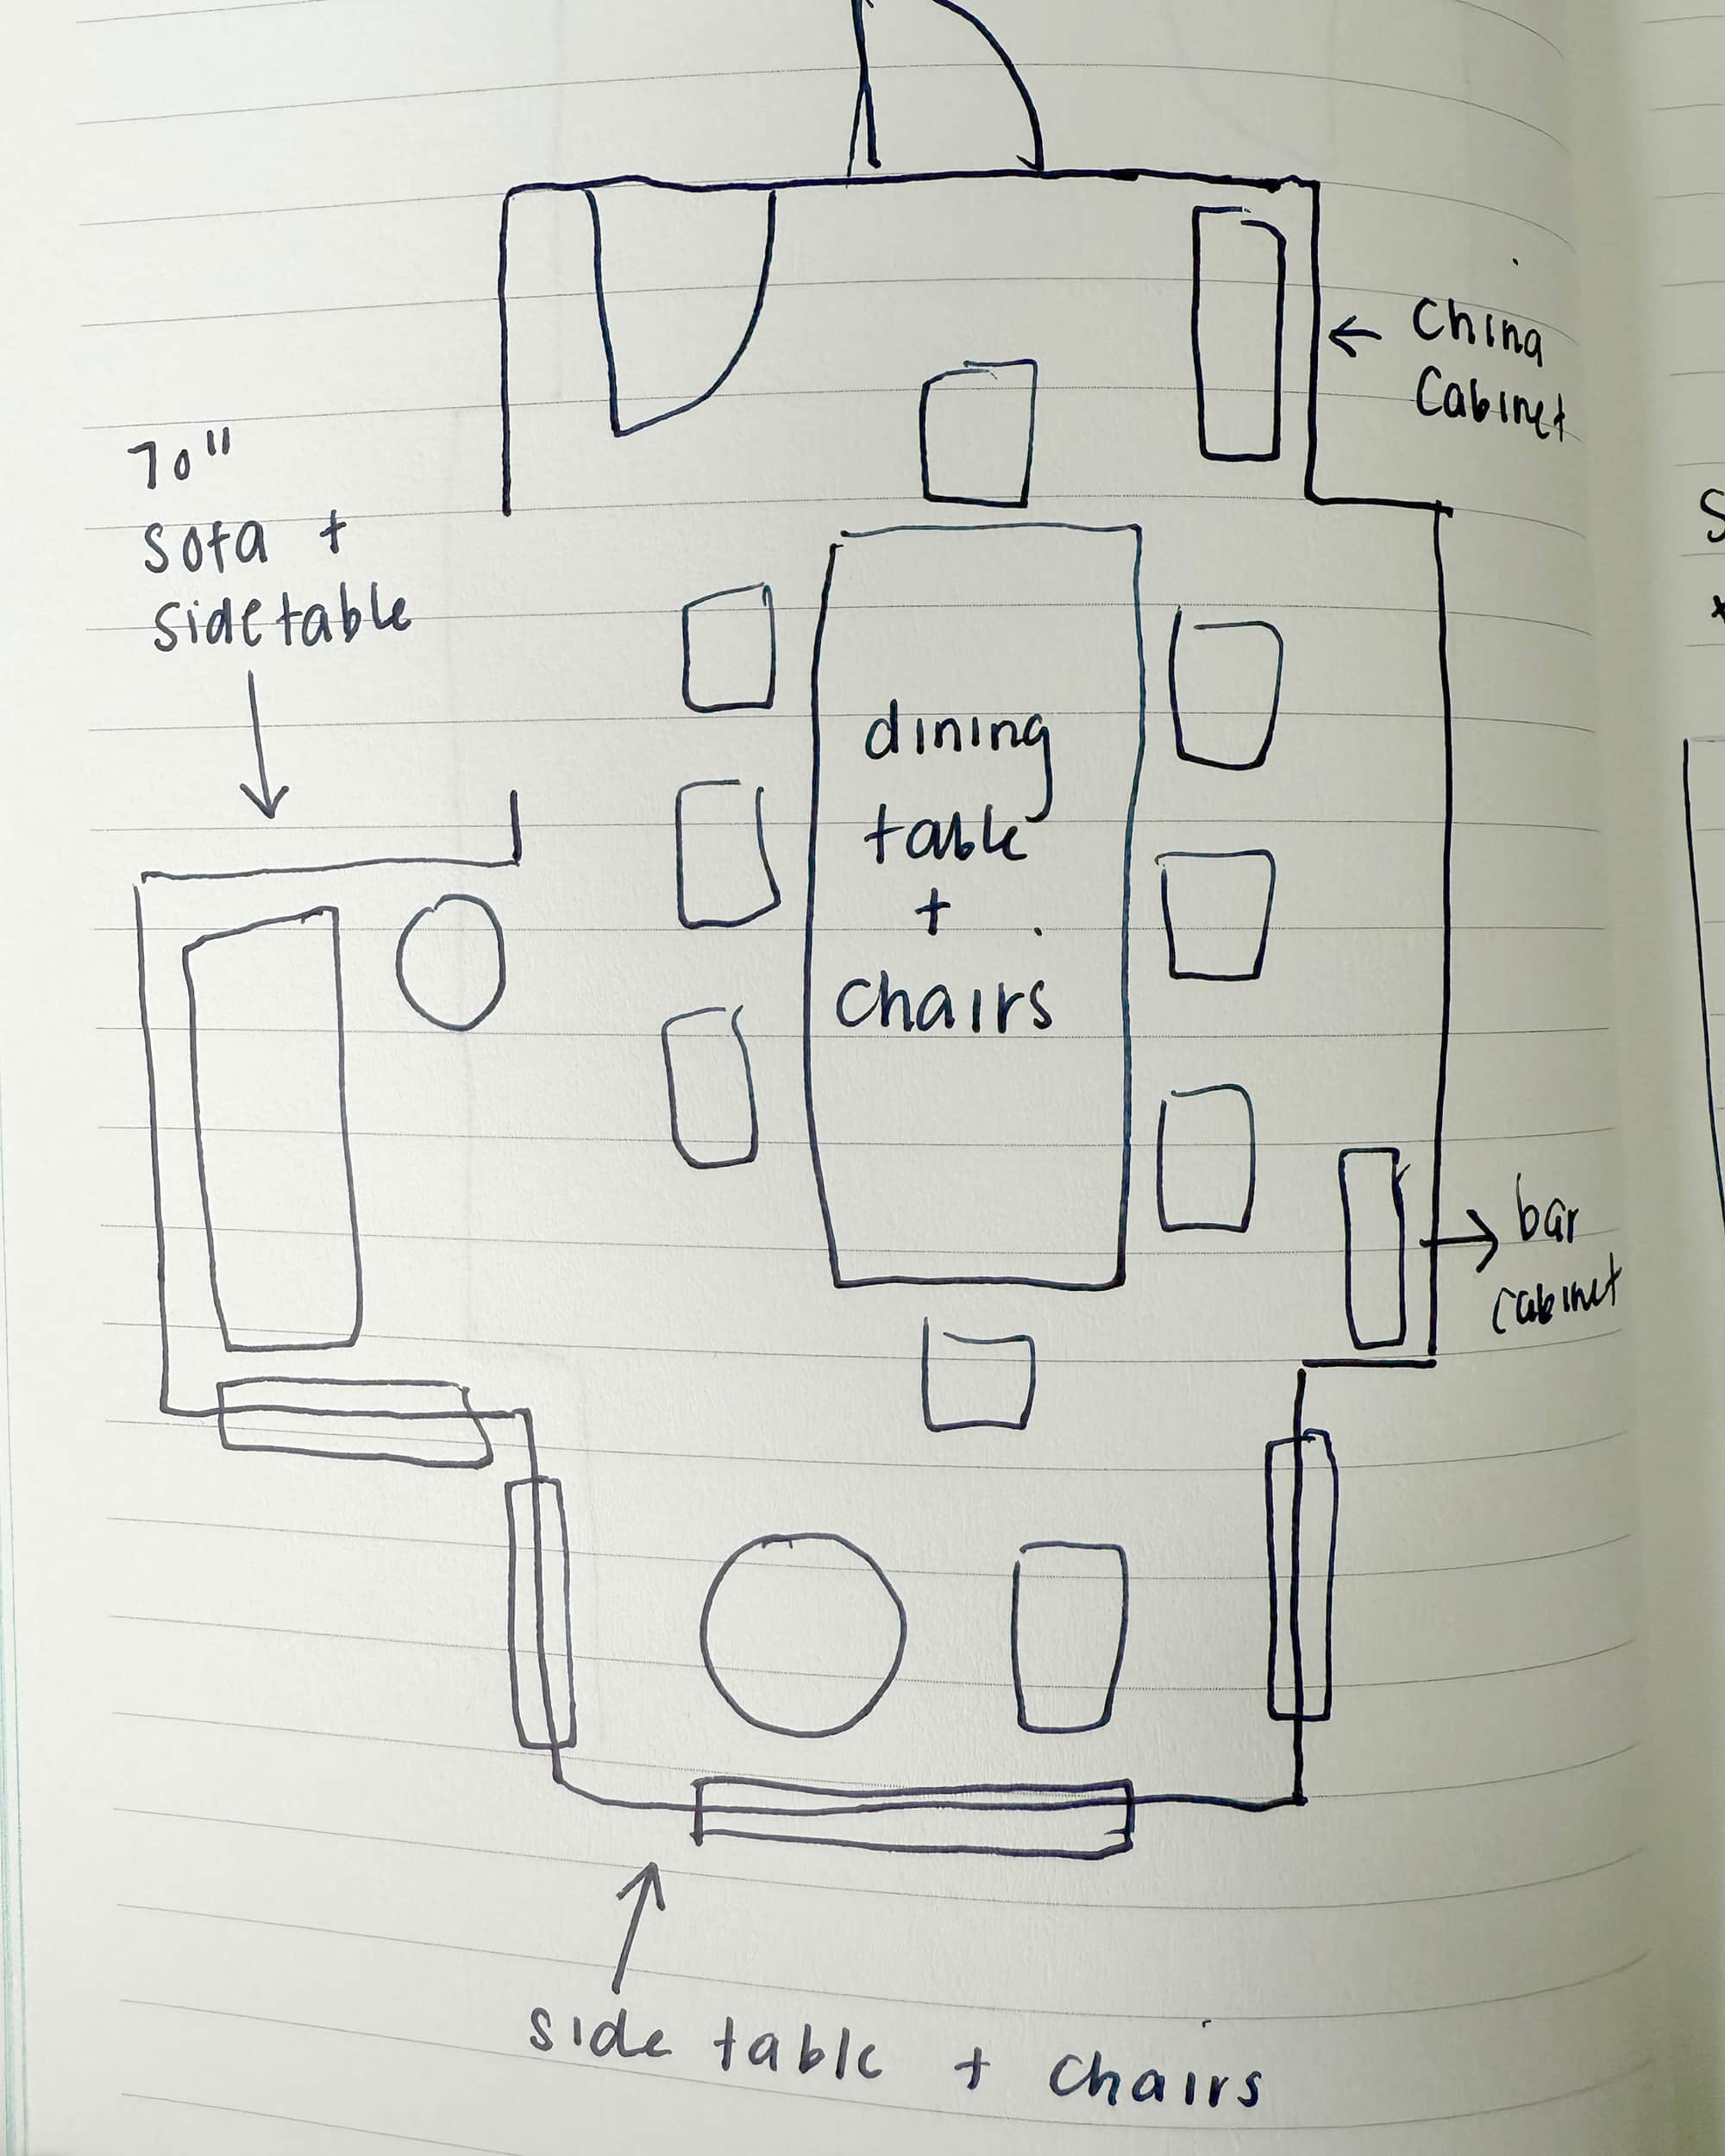 China
Cabinet
70"
sofa +
sidetable
dining
table
+
chairs
bar
cabinet
side table + chairs